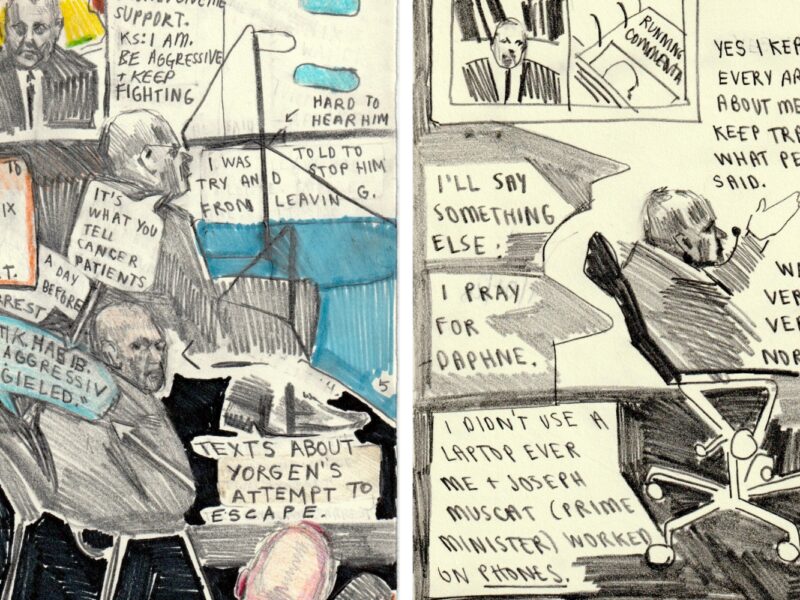 SUPPORT.
KS: I AM.
BE AGGRESSIVE
+ KEEP
FIGHTING
HARD TO
HEAR HIM
I WAS TOLD TO
TRY AND STOP HIM
FROM LEAVING.
IT'S
WHAT YOU
TELL
CANCER
PATIENTS
A DAY
BEFORE
RREST
IX
T.
HABIB.
AGGRESSIV
GIELED."
5
TEXTS ABOUT
YORGEN'S
ATTEMPT TO
ESCAPE.
RUNNING
COMMENTA
YES I KEP
EVERY AR
ABOUT ME
KEEP TRA
WHAT PE
SAID.
I'LL SAY
SOMETHING
ELSE.
I PRAY
FOR
DAPHNE.
WE
VER
VER
NOR
I DIDN'T USE A
LAPTOP EVER
ME + JOSEPH
MUSCAT (PRIME
MINISTER) WORKED
ON PHONES.